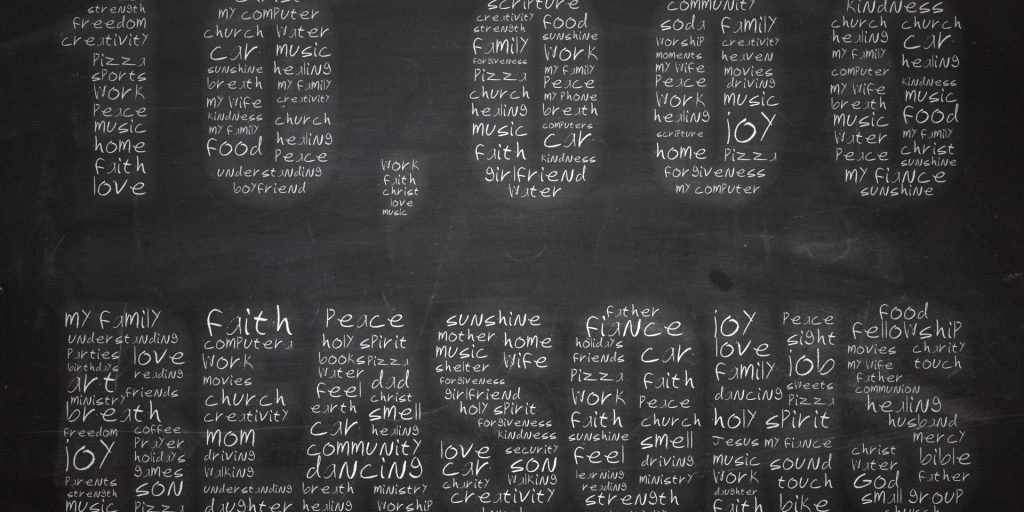 strength
freedom
creativity
Pizza
sports
work
Peace
music
home
faith
love
Christ
my computer
church water
car music
sunshine healing
breath my family
my wife creativity
kindness church
my family healing
food Peace
understanding
boyfriend
work
faith
christ
love
music
scripture
creativity food
strength sunshine
family work
forgiveness my family
Pizza Peace
church my Phone
healing breath
music computers
car
faith kindness
girlfriend
water
community
soda my family
worship church
moments heaven
my wife movies
Peace driving
work music
healing joy
scripture
home Pizza
forgiveness
my computer
kindness
church church
healing car
my family healing
computer kindness
my wife music
breath food
music my family
water christ
Peace sunshine
my fiance
sunshine
my family
understanding
Parties love
birthdays reading
art friends
ministry
breath
freedom coffee
joy Prayer
holidays
Parents games
strength son
music Pizza
faith
computers
work
movies
church
creativity
mom
driving
walking
understanding
daughter
Peace
holy spirit
books Pizza
water dad
feel christ
earth smell
car healing
community
dancing
breath ministry
home worship
sunshine
mother home
music wife
shelter
forgiveness
girlfriend
holy spirit
forgiveness
kindness
love security
car son
charity walking
creativity
father
fiance
holidays car
friends
Pizza faith
work Peace
faith church
sunshine smell
feel driving
learning ministry
reading
strength
joy Peace
love sight
family job
sweets
dancing Pizza
holy spirit
Jesus my fiance
music sound
work touch
daughter
faith bike
food
fellowship
movies charity
my wife touch
father
communion
healing
husband
mercy
christ bible
water
God father
small group